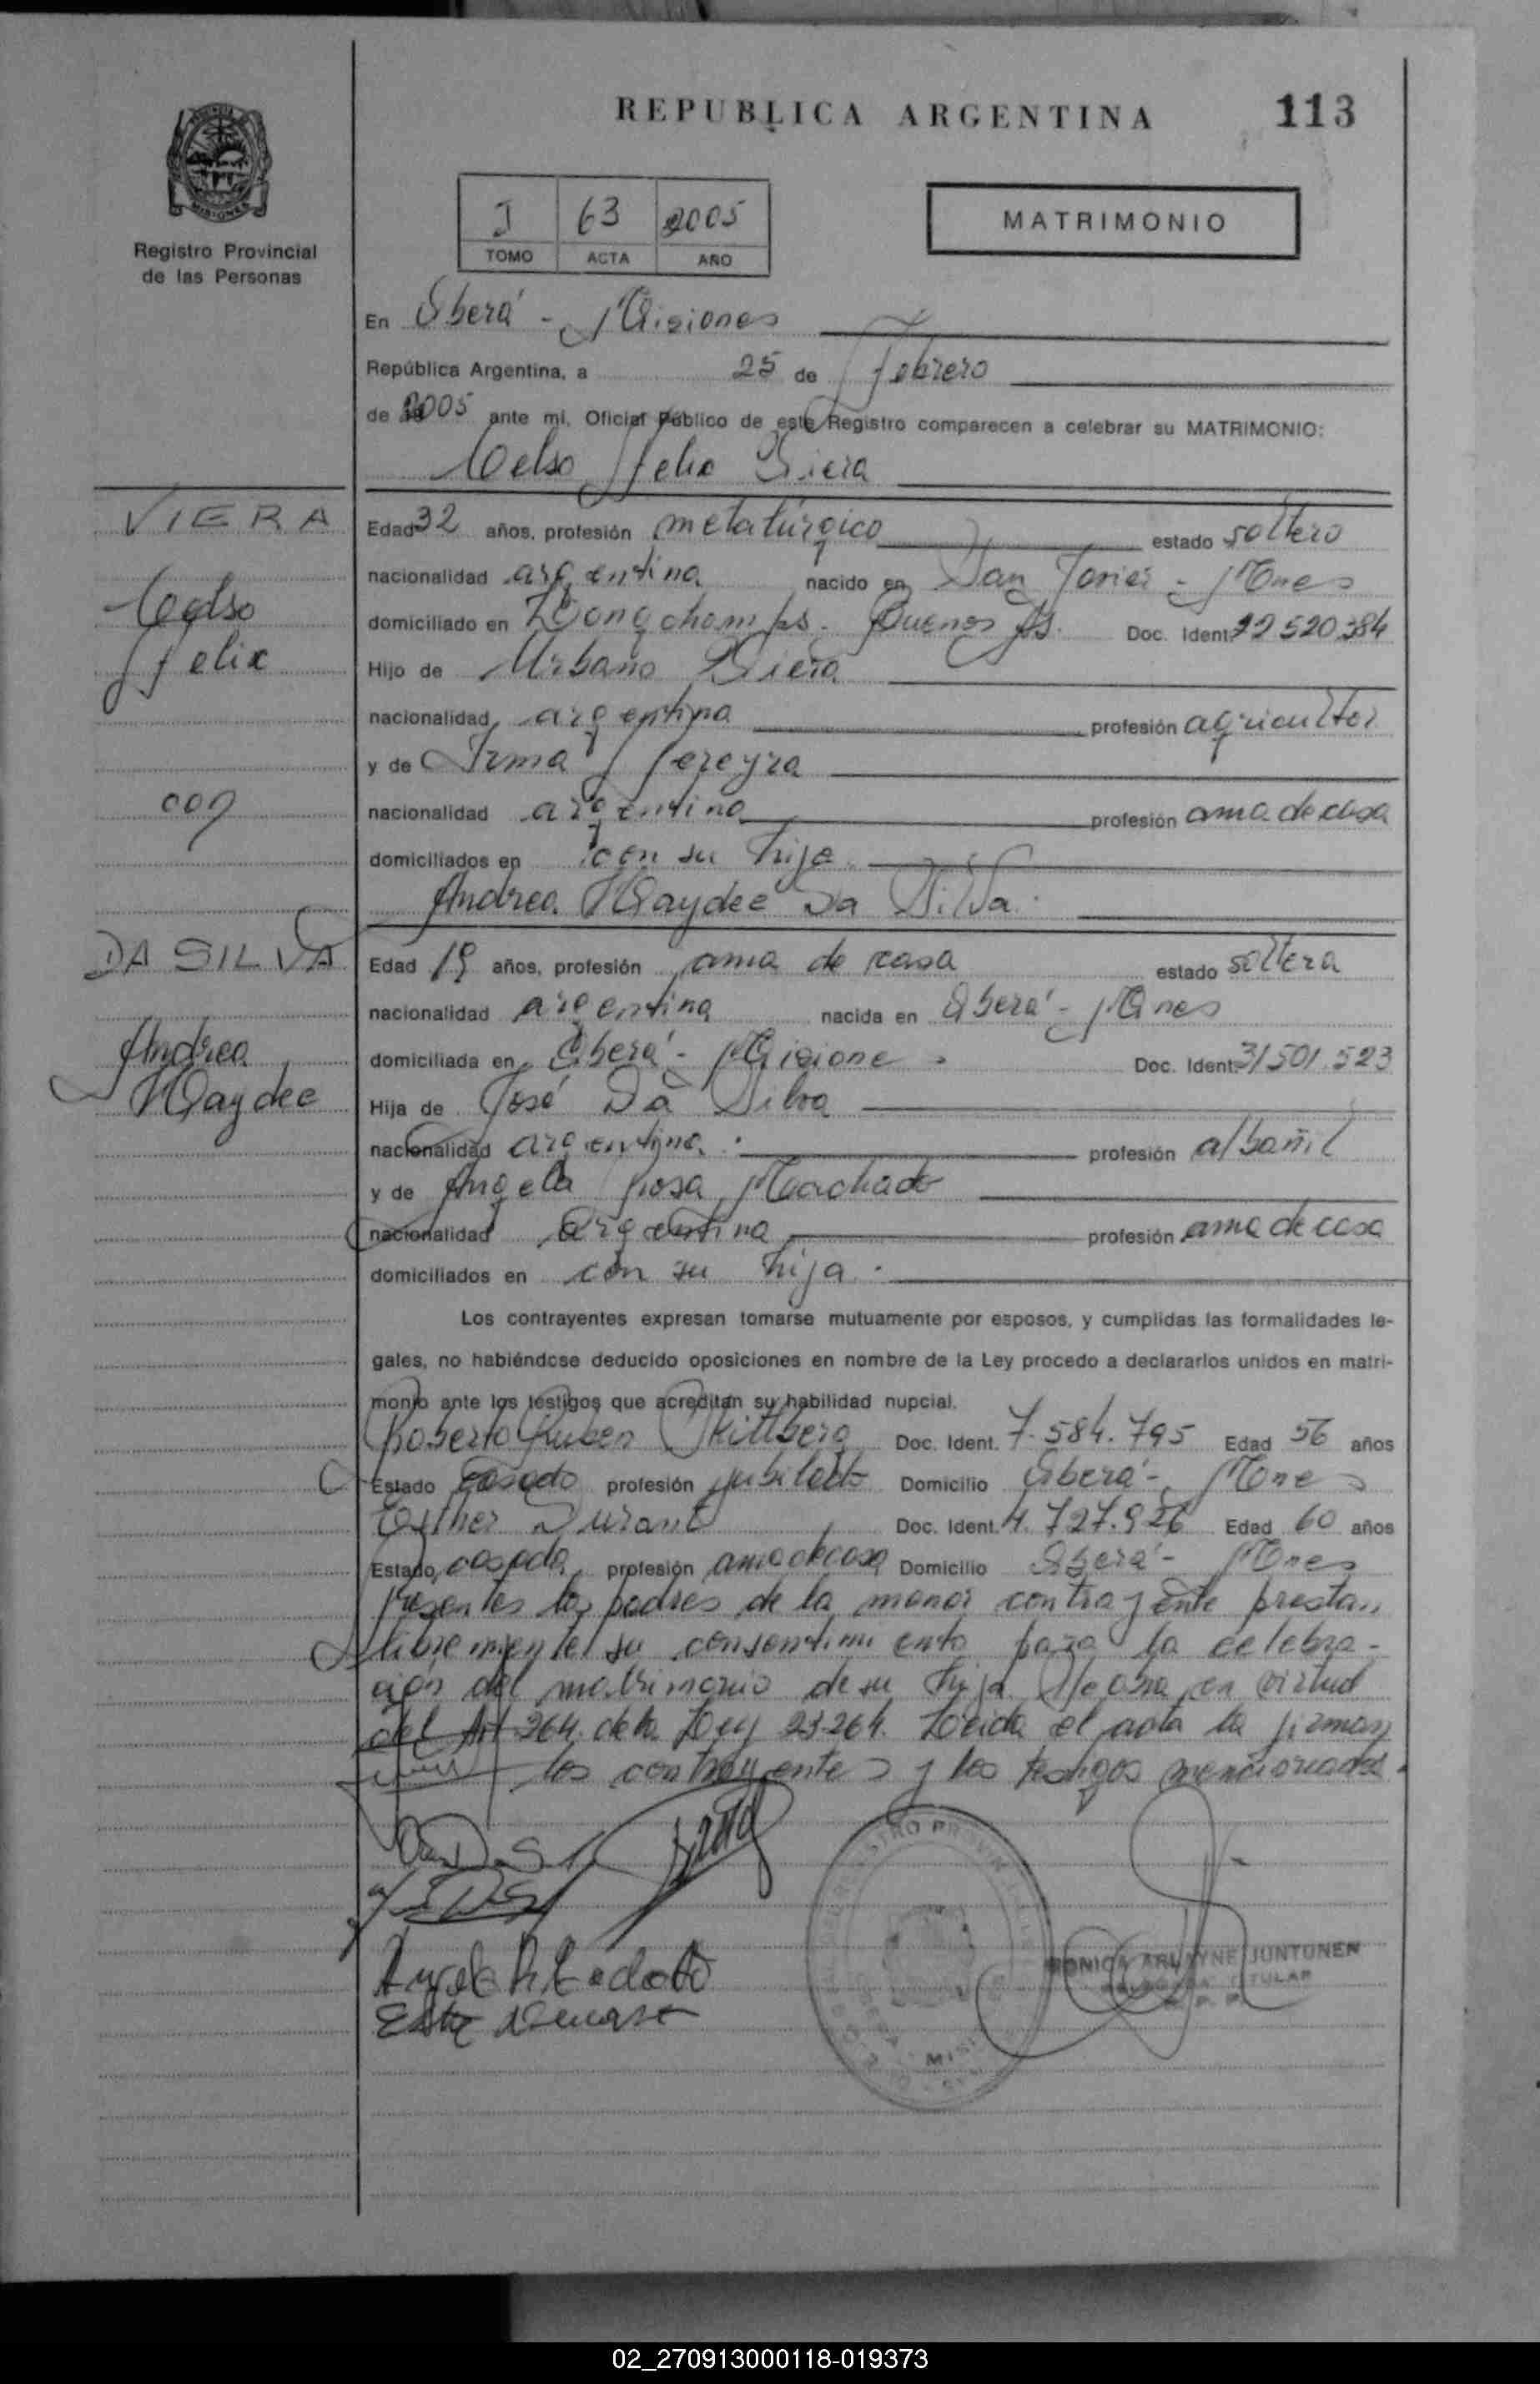 REPUBLICA ARGENTINA
113
MISIONES
Registro Provincial
de las Personas
I 63 2005
TOMO ACTA AÑO
MATRIMONIO
En Oberá - Misiones
República Argentina, a 25 de Febrero
de 2005 ante mi, Oficial Público de este Registro comparecen a celebrar su MATRIMONIO:
Celso Felix Viera
VIERA
Celso
Felix
con
DA SILVA
Andrea
Haydee
Edad 32 años, profesión metalúrgico estado soltero
nacionalidad argentina nacido en San Javier - Mnes
domiciliado en Longchamps - Buenos As. Doc. Ident. 22 520 384
Hijo de Urbano Viera
nacionalidad argentina profesión agricultor
y de Irma Pereyra
nacionalidad argentina profesión ama de casa
domiciliados en con su hijo
Andrea Haydee Da Silva
Edad 19 años, profesión ama de casa estado soltera
nacionalidad argentina nacida en Oberá - Mnes
domiciliada en Oberá - Misiones Doc. Ident. 31501.523
Hija de José Da Silva
nacionalidad argentina profesión albañil
y de Angela Rosa Machado
nacionalidad argentina profesión ama de casa
domiciliados en con su hija.
Los contrayentes expresan tomarse mutuamente por esposos, y cumplidas las formalidades le-
gales, no habiéndose deducido oposiciones en nombre de la Ley procedo a declararlos unidos en matri-
monio ante los testigos que acreditan su habilidad nupcial.
Roberto Ruben Doc. Ident. 7.584.795 Edad 56 años
Estado casado profesión jubilado Domicilio Oberá - Mnes
Esther Durand Doc. Ident. 4.727.926 Edad 60 años
Estado casada profesión ama de casa Domicilio Oberá - Mnes
Presentes los padres de la menor contrayente prestan
libremente su consentimiento para la celebra-
ción del matrimonio de su hija en virtud
del Art 264 de la Ley 23.264. Leída el acta la firman
los contrayentes y los testigos mencionados.
MONICA ARLAYNE JUNTUNEN
DELEGADA TITULAR
R. P. P.
02_270913000118-019373